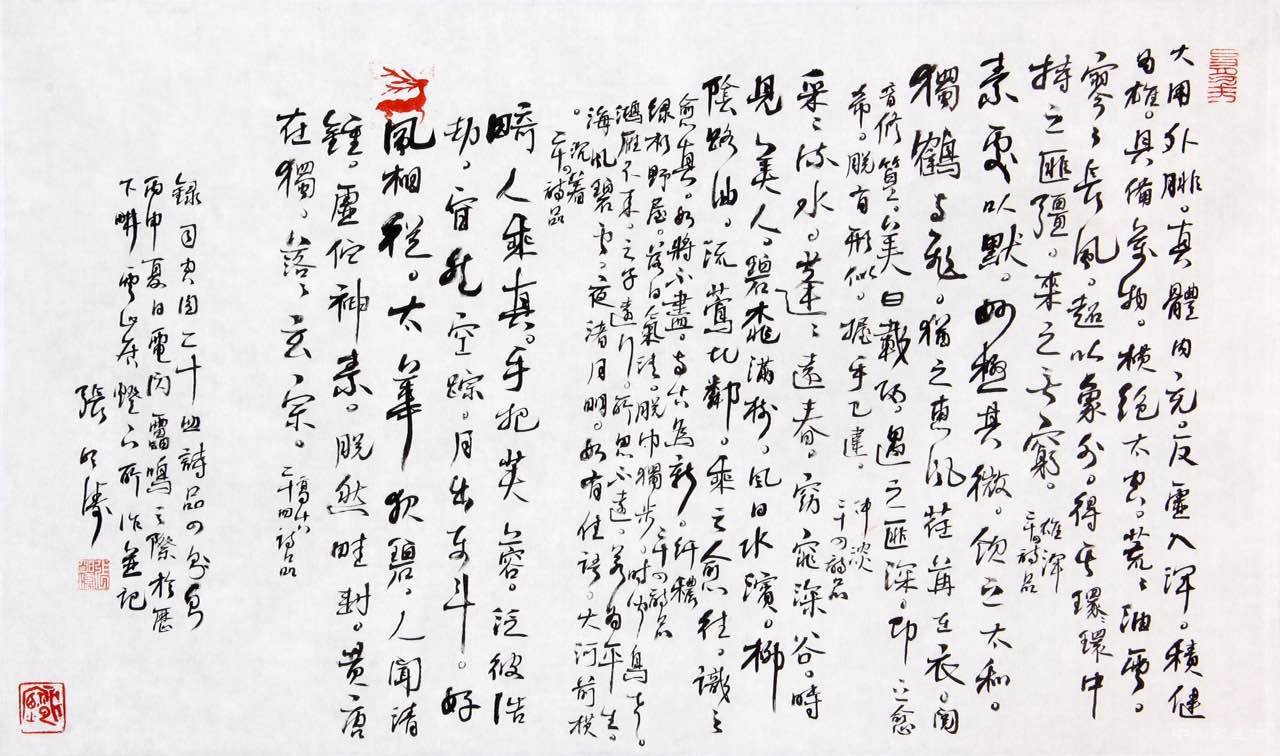 大用外腓。真體内充。反虛入渾。積健
為雄。具備萬物。橫絕太空。荒荒油雲。
寥寥長風。超以象外。得其環環中
持之匪彊。來之無窮。雄渾
二十四詩品
素處以默。妙極其微。飲之太和。
獨鶴與飛。猶之惠風。荏苒在衣。閱
音修篁。美曰載歸。遇之匪深。即之愈
希。脫有形似。握手已違。沖淡
二十四詩品
采采流水。蓬蓬遠春。窈窕深谷。時
見美人。碧桃滿樹。風日水濱。柳
陰路曲。流鶯比鄰。乘之愈往。識之
愈真。如將不盡。與古為新。纖穠
二十四詩品
綠杉野屋。落日氣清。脫巾獨步。時聞鳥聲。
鴻雁不來。之子遠行。所思不遠。若為平生。
海風碧雲。夜渚月明。如有佳語。大河前橫
。沉著
二十四詩品
畸人乘真。手把芙蓉。泛彼浩
劫。窅然空踪。月出東斗。好
風相從。太華夜碧。人聞清
鐘。虛佇神素。脫然畦封。黃唐
在獨。落落玄宗。高古
二十四詩品
錄司空圖二十四詩品
丙申夏日電閃雷鳴之際於歷
下畊雲山房燈下所作並記
張